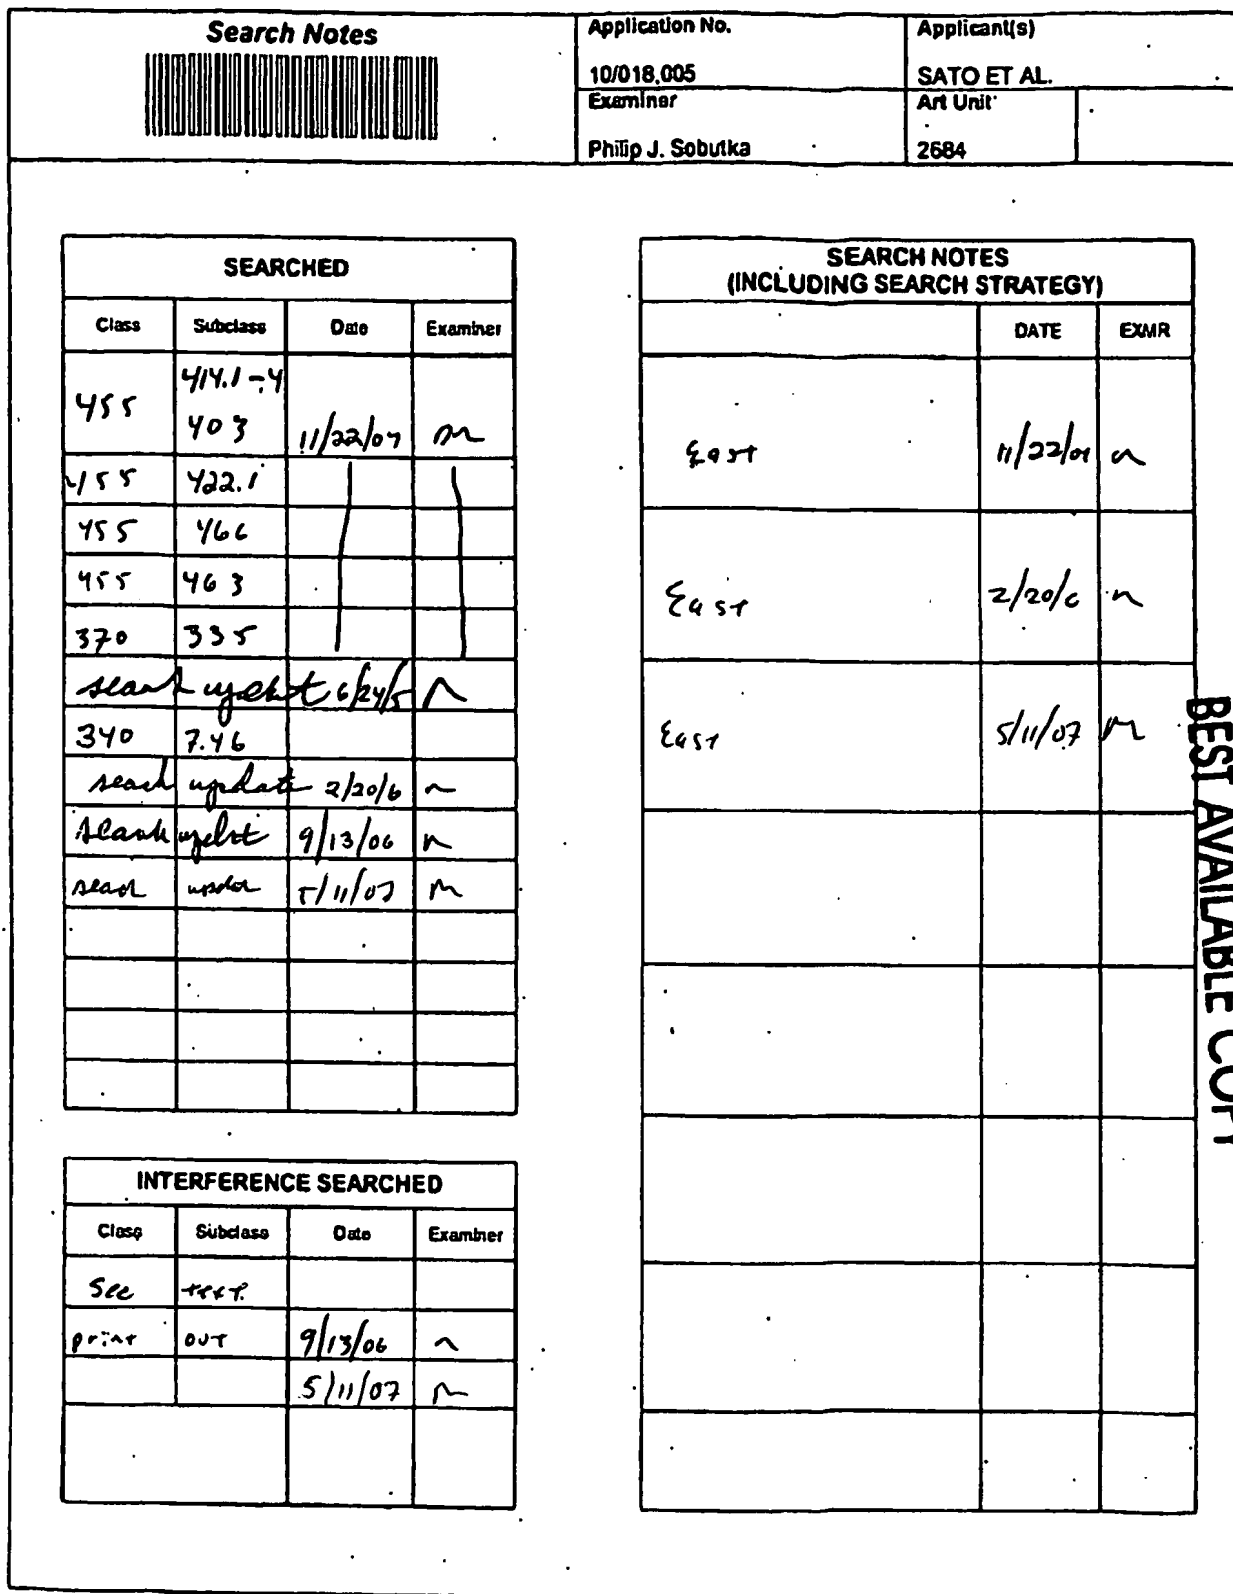 Search Notes
Application No.
10/018,005
Applicant(s)
SATO ET AL.
Examiner
Philip J. Sobutka
Art Unit
2684
SEARCHED
Class Subclass Date Examiner
455 414.1-.4
403 11/22/04
455 422.1
455 466
455 463
370 335
search update 6/24/5
340 7.46
search update 2/20/6
search update 9/13/06
search update 5/11/07
INTERFERENCE SEARCHED
Class Subclass Date Examiner
See text
print out 9/13/06
5/11/07
SEARCH NOTES
(INCLUDING SEARCH STRATEGY)
DATE EXMR
East 11/22/04
East 2/20/6
East 5/11/07
BEST AVAILABLE COPY